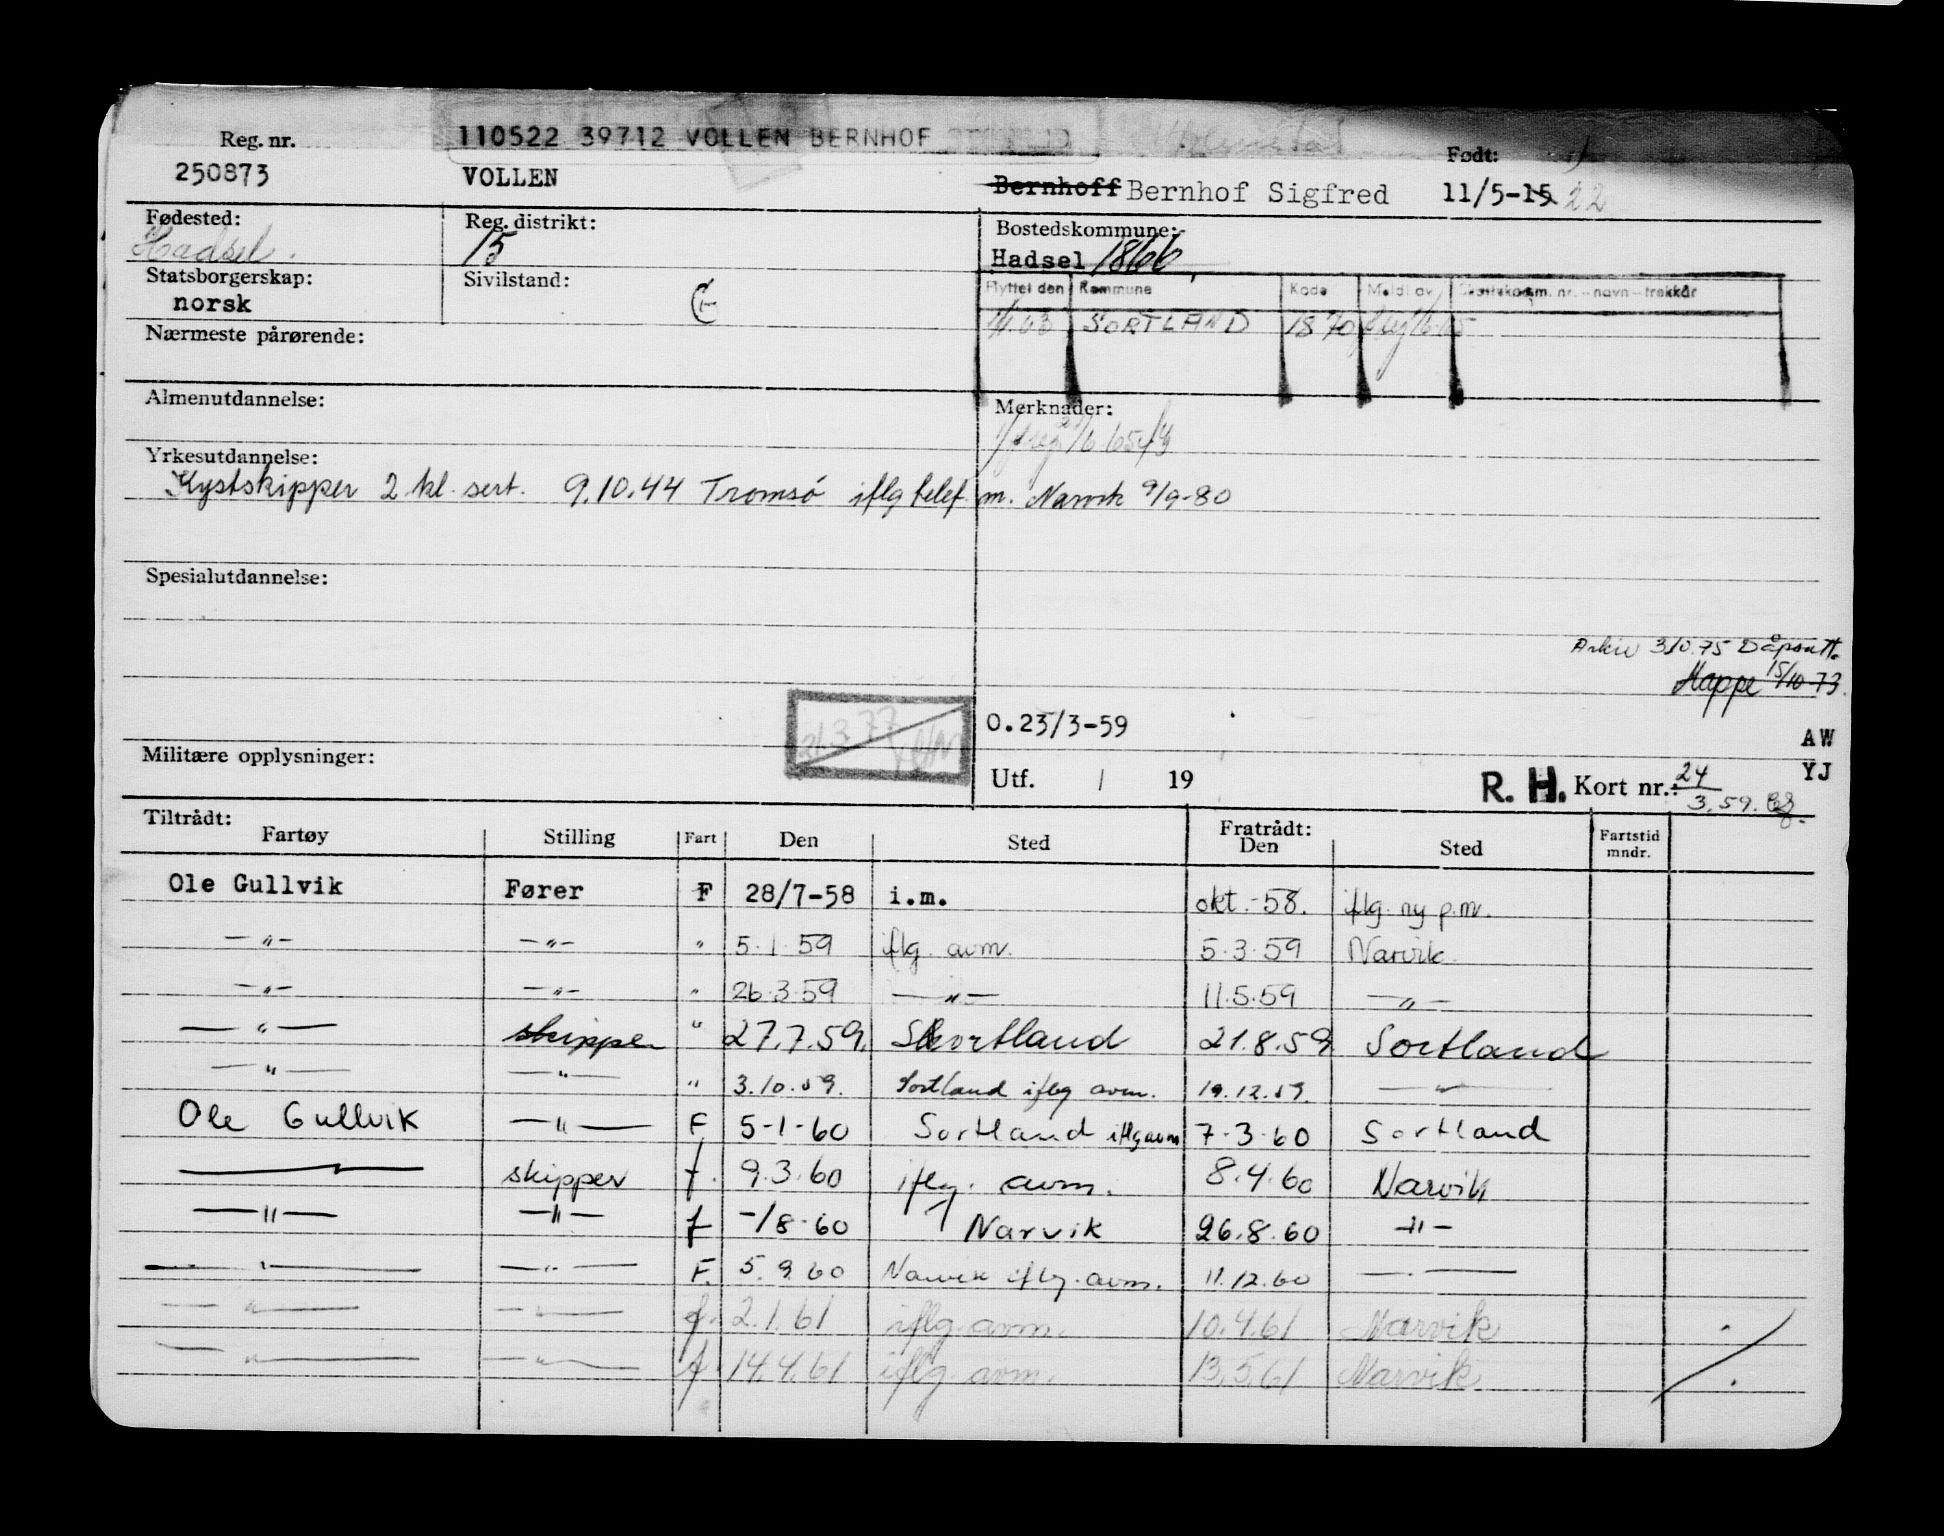 110522 39712 VOLLEN BERNHOF
Reg. nr. Født:
250873 VOLLEN Bernhoff Bernhof Sigfred 11/5-15 22
Fødested: Reg. distrikt: Bostedskommune:
Hadsel. 15 Hadsel 1866
Statsborgerskap: Sivilstand: Flyttet den Kommune Kode Meldt av
norsk SORTLAND 1870
Nærmeste pårørende:
Almenutdannelse: Merknader:
Yrkesutdannelse:
Kystskipper 2 kl. sert. 9.10.44 Tromsø iflg telef m. Narvik 9/9-80
Spesialutdannelse:
Arkiv 3/0.75
Mappe 15/10-73
0.23/3-59
AW
Militære opplysninger: Utf. / 19 R. H. Kort nr.: 24/3.59. YJ
Tiltrådt: Fratrådt:
Fartøy Stilling Fart Den Sted Den Sted Fartstid mndr.
Ole Gullvik Fører F 28/7-58 i.m. okt.-58. iflg. ny p.m.
—"— —"— " 5.1.59 iflg. avm. 5.3.59 Narvik.
—"— —"— " 26.3.59 —"— 11.5.59 —"—
—"— skipper " 27.7.59. Skortland 21.8.59 Sortland
—"— —"— " 3.10.59. Sortland iflg avm. 19.12.59. —"—
Ole Gullvik —"— F 5-1-60 Sortland iflg avm 7-3-60 Sortland
—— skipper f. 9.3.60 iflg. avm. 8.4.60 Narvik
—"— —"— f -/8-60 Narvik 26.8.60 —"—
—"— —"— F. 5.9.60 Narvik iflg. avm. 11.12.60 —"—
—"— —"— f. 2.1.61 iflg. avm. 10.4.61 Narvik
—"— —"— f. 14.4.61 iflg. avm. 13.5.61 Narvik